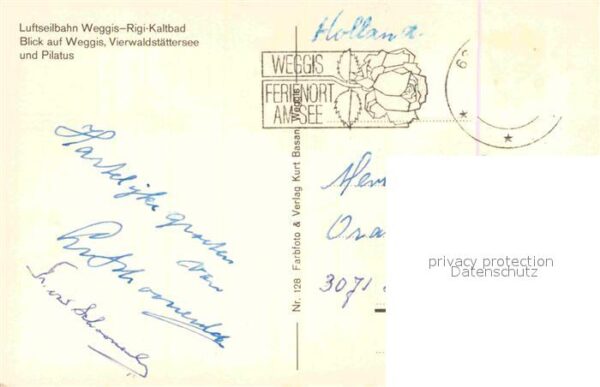 Luftseilbahn Weggis–Rigi-Kaltbad
Blick auf Weggis, Vierwaldstättersee
und Pilatus
Holland.
WEGGIS
FERIENORT
AM SEE
Hartelijke groeten
van
Nr. 128 Farbfoto & Verlag Kurt Basan, Weggis
3071
privacy protection
Datenschutz